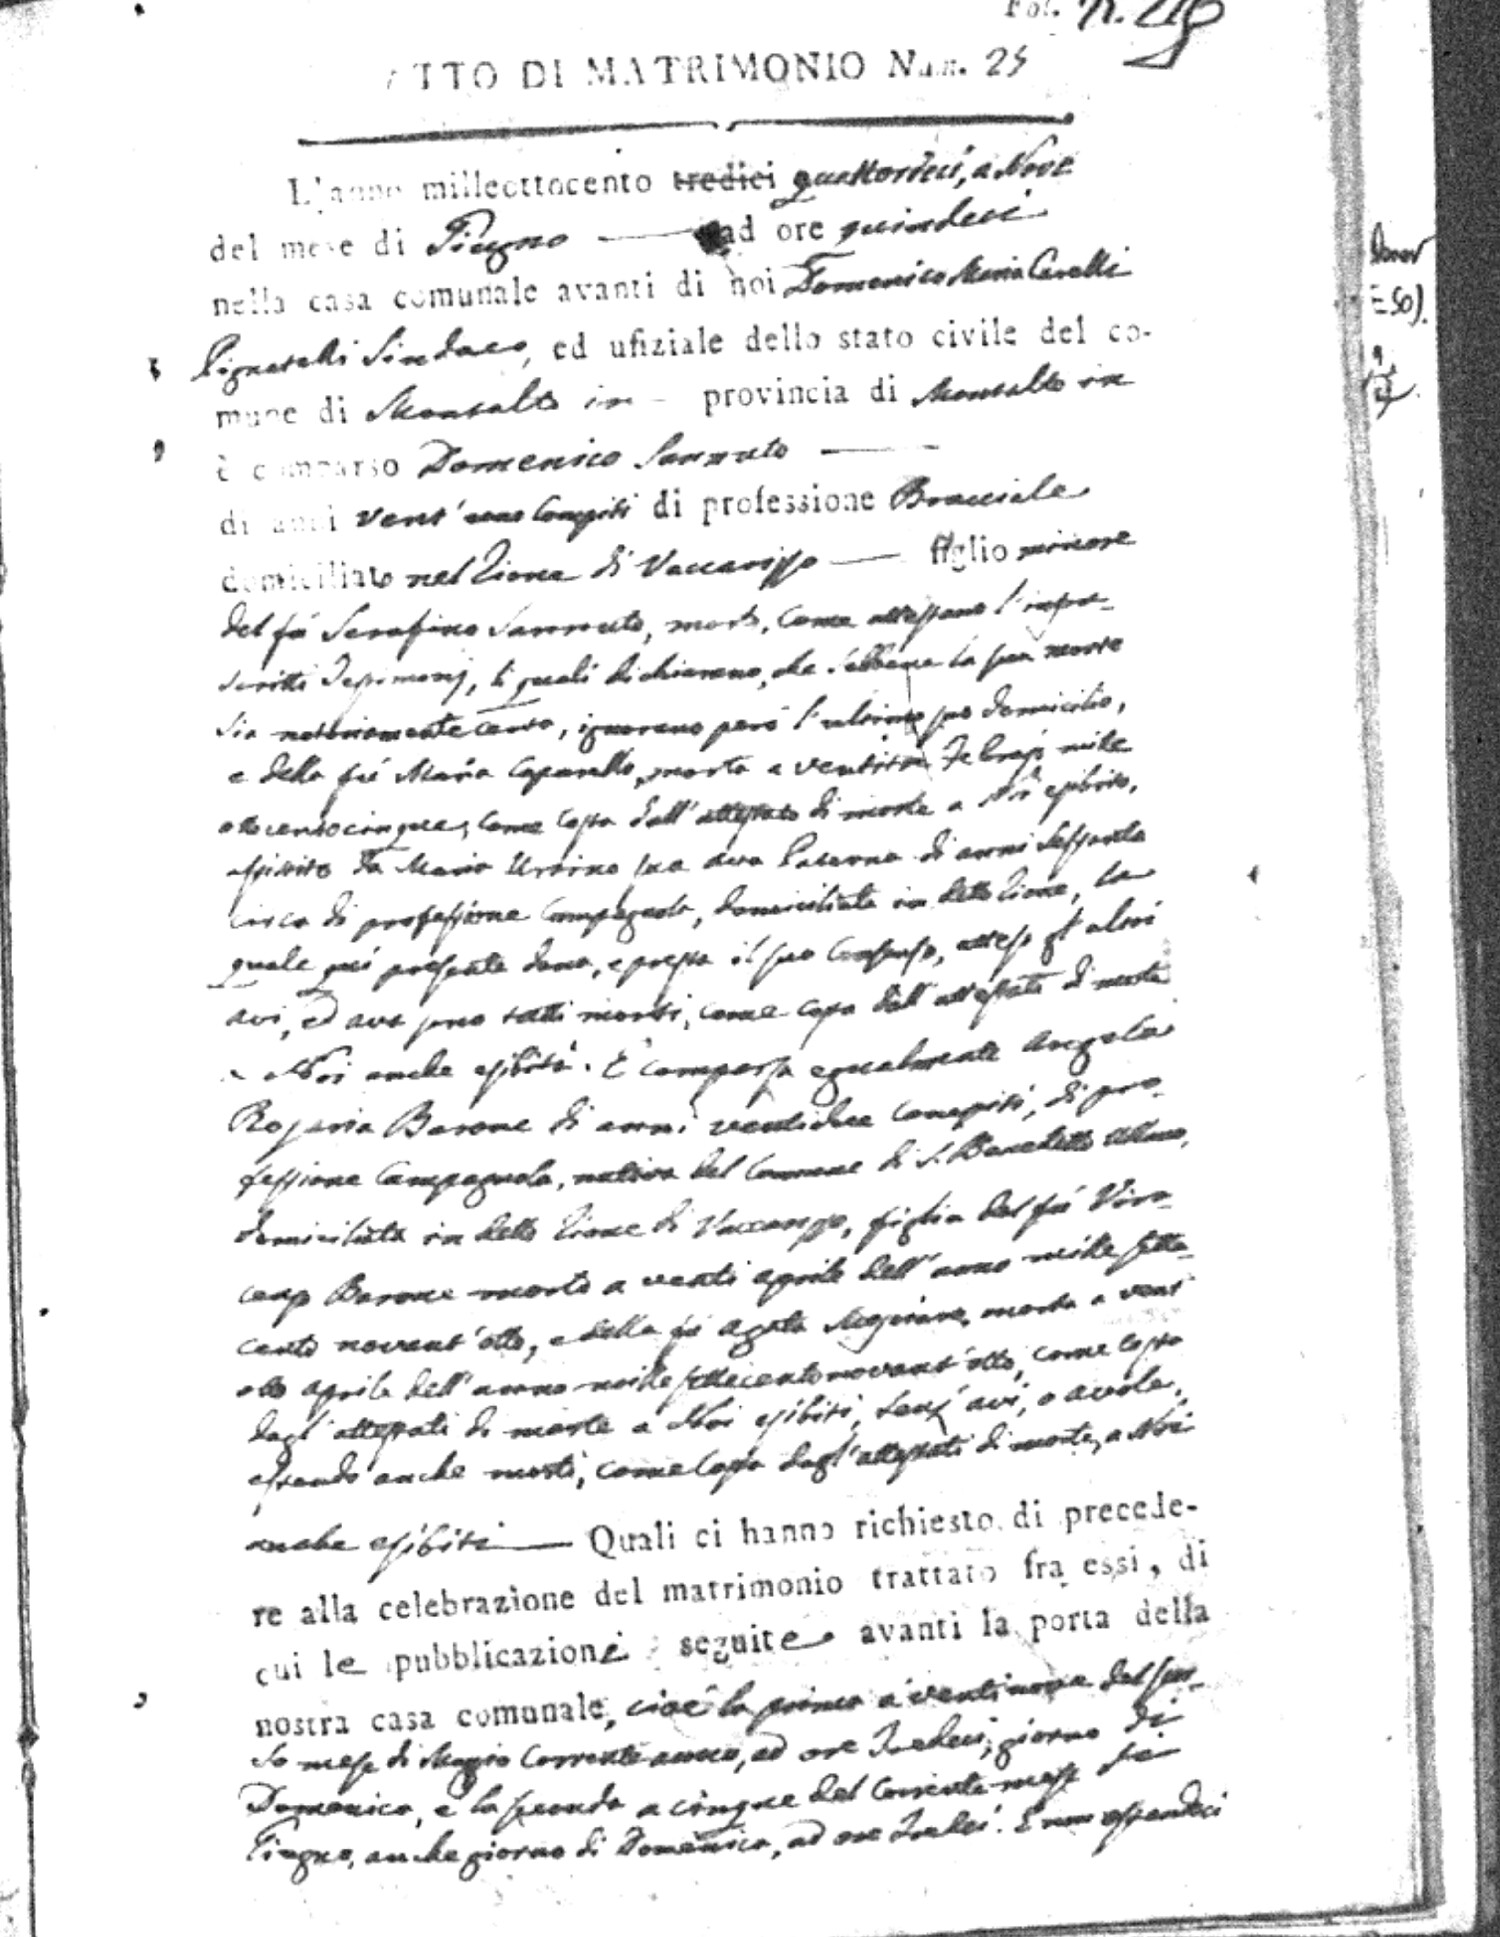 Fol. n.
ATTO DI MATRIMONIO Num. 25
L'anno milleottocento tredici quattordeci, a Nove
del mese di Giugno — ad ore quindeci
nella casa comunale avanti di noi Domenico Maria Cavalli
Pignatelli Sindaco, ed ufiziale dello stato civile del co-
mune di Montalto in - provincia di Montalto in
è comparso Domenico Sannuto —
di anni vent'uno compiti di professione Bracciale
domiciliato nel Rione di Vaccarisso — figlio minore
del fù Serafino Sannuto, morto, come attestano l'infra-
scritti Testimonj, li quali dichiarano, che sebbene la sua morte
sia notoriamente certa, ignorano però l'ultimo suo domicilio,
e della fù Maria Caparello, morta a ventitre Febrajo mille
ottocentocinque, come costa dall'attestato di morte a Noi esibito,
assistito da Maria Ursino sua ava Paterna di anni sessanta
circa di professione Campagnola, domiciliata in detto Rione, la
quale qui presente dona, e presta il suo consenso, atteso gl'altri
avi, ed ava sono tutti morti, come costa dall'attestati di morte
a Noi anche esibiti. È comparsa egualmente Angela
Rosaria Barone di anni ventidue compiti, di pro-
fessione Campagnola, nativa del Comune di S. Benedetto Ullano,
domiciliata in detto Rione di Vaccarisso, figlia del fù Vin-
cenzo Barone morto a venti aprile dell'anno mille sette
cento novant'otto, e della fù Agata morta a vent'
otto aprile dell'anno mille settecentonovant'otto, come costa
dagl'attestati di morte a Noi esibiti, senz'avi, o avole,
essendo anche morti, come costa dagl'attestati di morte, a Noi
anche esibiti — Quali ci hanno richiesto di precede-
re alla celebrazione del matrimonio trattato fra essi, di
cui le pubblicazioni seguite avanti la porta della
nostra casa comunale, cioè la prima a ventinove del scor-
so mese di Maggio corrente anno, ad ore tredeci, giorno di
Domenica, e la seconda a cinque del corrente mese di
Giugno, anche giorno di Domenica, ad ore tredeci. E non essendoci